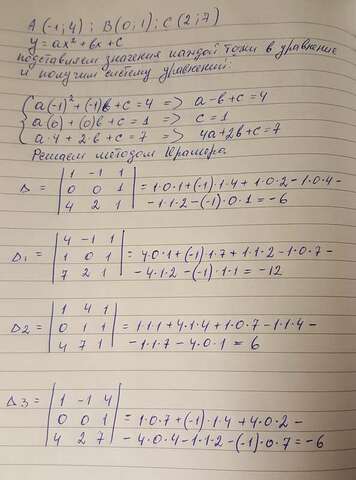 A (-1; 4); B (0; 1); C (2; 7)
y = ax² + bx + c
подставляем значения каждой точки в уравнение
и получим систему уравнений:
{ a(-1)² + (-1)b + c = 4 => a - b + c = 4
a(0) + (0)b + c = 1 => c = 1
a·4 + 2b + c = 7 => 4a + 2b + c = 7
Решаем методом Крамера
Δ = | 1 -1 1 |
| 0 0 1 | = 1·0·1 + (-1)·1·4 + 1·0·2 - 1·0·4 -
| 4 2 1 | - 1·1·2 - (-1)·0·1 = -6
Δ1 = | 4 -1 1 |
| 1 0 1 | = 4·0·1 + (-1)·1·7 + 1·1·2 - 1·0·7 -
| 7 2 1 | - 4·1·2 - (-1)·1·1 = -12
Δ2 = | 1 4 1 |
| 0 1 1 | = 1·1·1 + 4·1·4 + 1·0·7 - 1·1·4 -
| 4 7 1 | - 1·1·7 - 4·0·1 = 6
Δ3 = | 1 -1 4 |
| 0 0 1 | = 1·0·7 + (-1)·1·4 + 4·0·2 -
| 4 2 7 | - 4·0·4 - 1·1·2 - (-1)·0·7 = -6